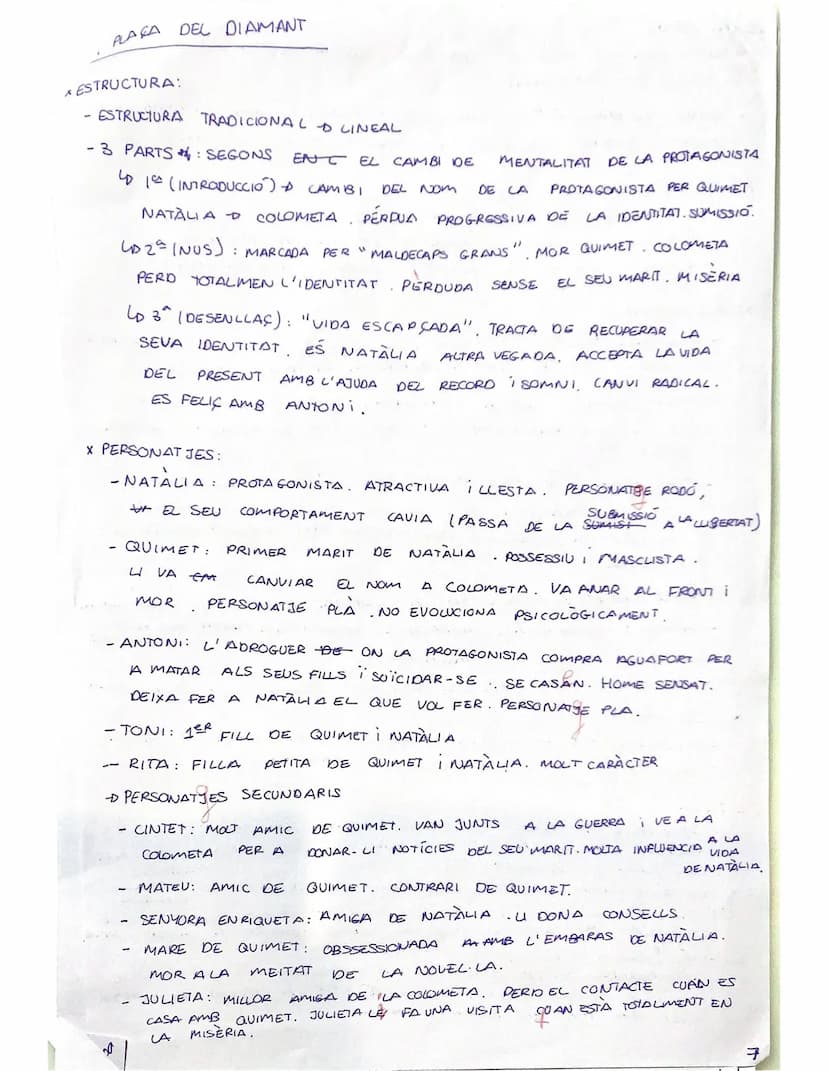 PLAÇA DEL DIAMANT
x ESTRUCTURA:
- ESTRUCTURA TRADICIONAL → LINEAL
- 3 PARTS: SEGONS EL CAMBI DE MENTALITAT DE LA PROTAGONISTA
↳ 1ª (INTRODUCCIÓ) → CAMBI DEL NOM DE LA PROTAGONISTA PER QUIMET
NATÀLIA → COLOMETA. PÉRDUA PROGRESSIVA DE LA IDENTITAT. SUMISSIÓ.
↳ 2ª (NUS): MARCADA PER "MALDECAPS GRANS". MOR QUIMET. COLOMETA
PERD TOTALMEN L'IDENTITAT. PÈRDUDA SENSE EL SEU MARIT. MISÈRIA
↳ 3ª (DESENLLAÇ): "VIDA ESCAPÇADA". TRACTA DE RECUPERAR LA
SEVA IDENTITAT. ÉS NATÀLIA ALTRA VEGADA. ACCEPTA LA VIDA
DEL PRESENT AMB L'AJUDA DEL RECORD i SOMNI. CANVI RADICAL.
ES FELIÇ AMB ANTONI.
x PERSONATJES:
- NATÀLIA: PROTAGONISTA. ATRACTIVA i LLESTA. PERSONATGE RODÓ,
EL SEU COMPORTAMENT CAVIA (PASSA DE LA SUBMISSIÓ A LA LLIBERTAT)
- QUIMET: PRIMER MARIT DE NATÀLIA. POSSESSIU i MASCLISTA.
LI VA CANVIAR EL NOM A COLOMETA. VA ANAR AL FRONT i
MOR. PERSONATJE PLÀ. NO EVOLUCIONA PSICOLÒGICAMENT.
- ANTONI: L'ADROGUER ON LA PROTAGONISTA COMPRA AGUAFORT PER
A MATAR ALS SEUS FILLS i SUÏCIDAR-SE. SE CASAN. HOME SENSAT.
DEIXA FER A NATÀLIA EL QUE VOL FER. PERSONATGE PLA.
- TONI: 1ER FILL DE QUIMET i NATÀLIA
- RITA: FILLA PETITA DE QUIMET i NATÀLIA. MOLT CARÀCTER
→ PERSONATGES SECUNDARIS
- CINTET: MOLT AMIC DE QUIMET. VAN JUNTS A LA GUERRA i VE A LA
COLOMETA PER A DONAR-LI NOTÍCIES DEL SEU MARIT. MOLTA INFLUENCIA A LA VIDA
DE NATÀLIA.
- MATEU: AMIC DE QUIMET. CONTRARI DE QUIMET.
- SENYORA ENRIQUETA: AMIGA DE NATÀLIA. LI DONA CONSELLS.
- MARE DE QUIMET: OBSSESSIONADA AMB L'EMBARAS DE NATÀLIA.
MOR A LA MEITAT DE LA NOVEL·LA.
- JULIETA: MILLOR AMIGA DE LA COLOMETA. PERD EL CONTACTE CUAN ES
CASA AMB QUIMET. JULIETA LI FA UNA VISITA QUAN ESTÀ TOTALMENT EN
LA MISÈRIA.
7